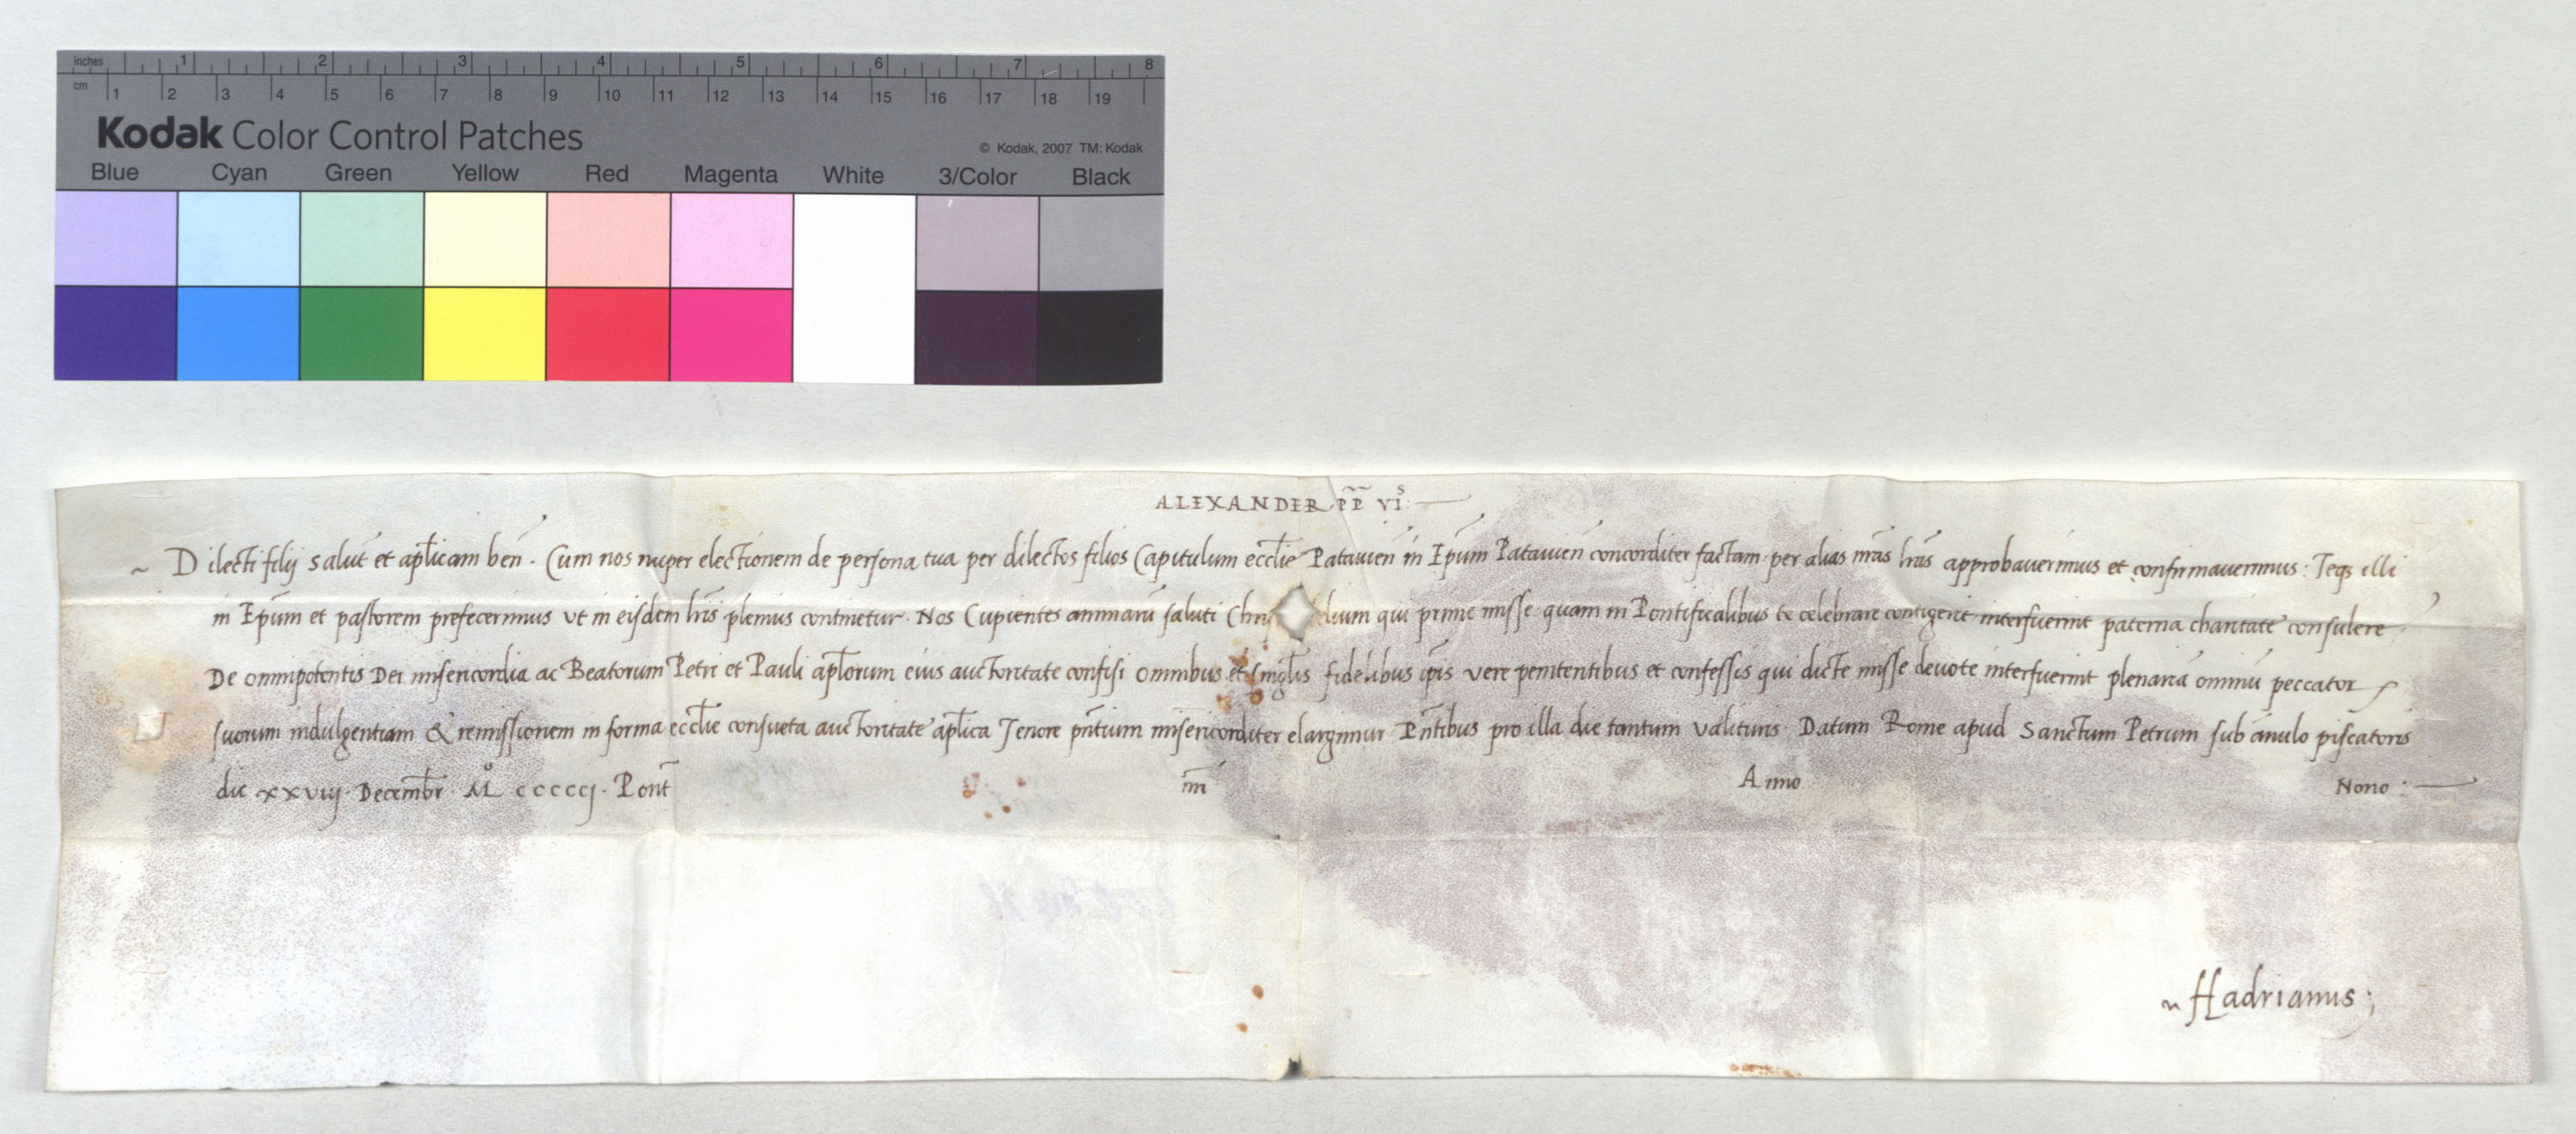 inches 1 2 3 4 5 6 7 8
cm 1 2 3 4 5 6 7 8 9 10 11 12 13 14 15 16 17 18 19
Kodak Color Control Patches
© Kodak, 2007 TM: Kodak
Blue Cyan Green Yellow Red Magenta White 3/Color Black
ALEXANDER PP VIˢ
Dilecti filij salut̄ et apl̄icam ben̄. Cum nos nuper electionem de persona tua per dilectos filios Capitulum eccl̄ie Patauien̄ in Ep̄um Patauien̄ concorditer factam per alias nr̄as lr̄as approbauerimus et confirmauerimus: Teqꝫ illi
in Ep̄um et pastorem prefecerimus ut in eisdem lr̄is plenius continetur. Nos Cupientes animarū saluti qui prime misse quam in Pontificalibus te celebrare contigerit interfuerint paterna charitate consulere,
De omnipotentis Dei misericordia ac Beatorum Petri et Pauli apl̄orum eius auctoritate confisi omnibus et singl̄is fidelibus ip̄is vere penitentibus et confessis qui dicte misse deuote interfuerint plenariā omniū peccator
suorum indulgentiam & remissionem in forma eccl̄ie consueta auctoritate apl̄ica Tenore pn̄tium misericorditer elargimur Pn̄tibus pro illa die tantum valituris. Datum Rome apud Sanctum Petrum sub anulo piscatoris
die xxviij. Decembr̄. Mº ccccc j. Pont̄ n̄ri Anno Nono:
Hadrianus;